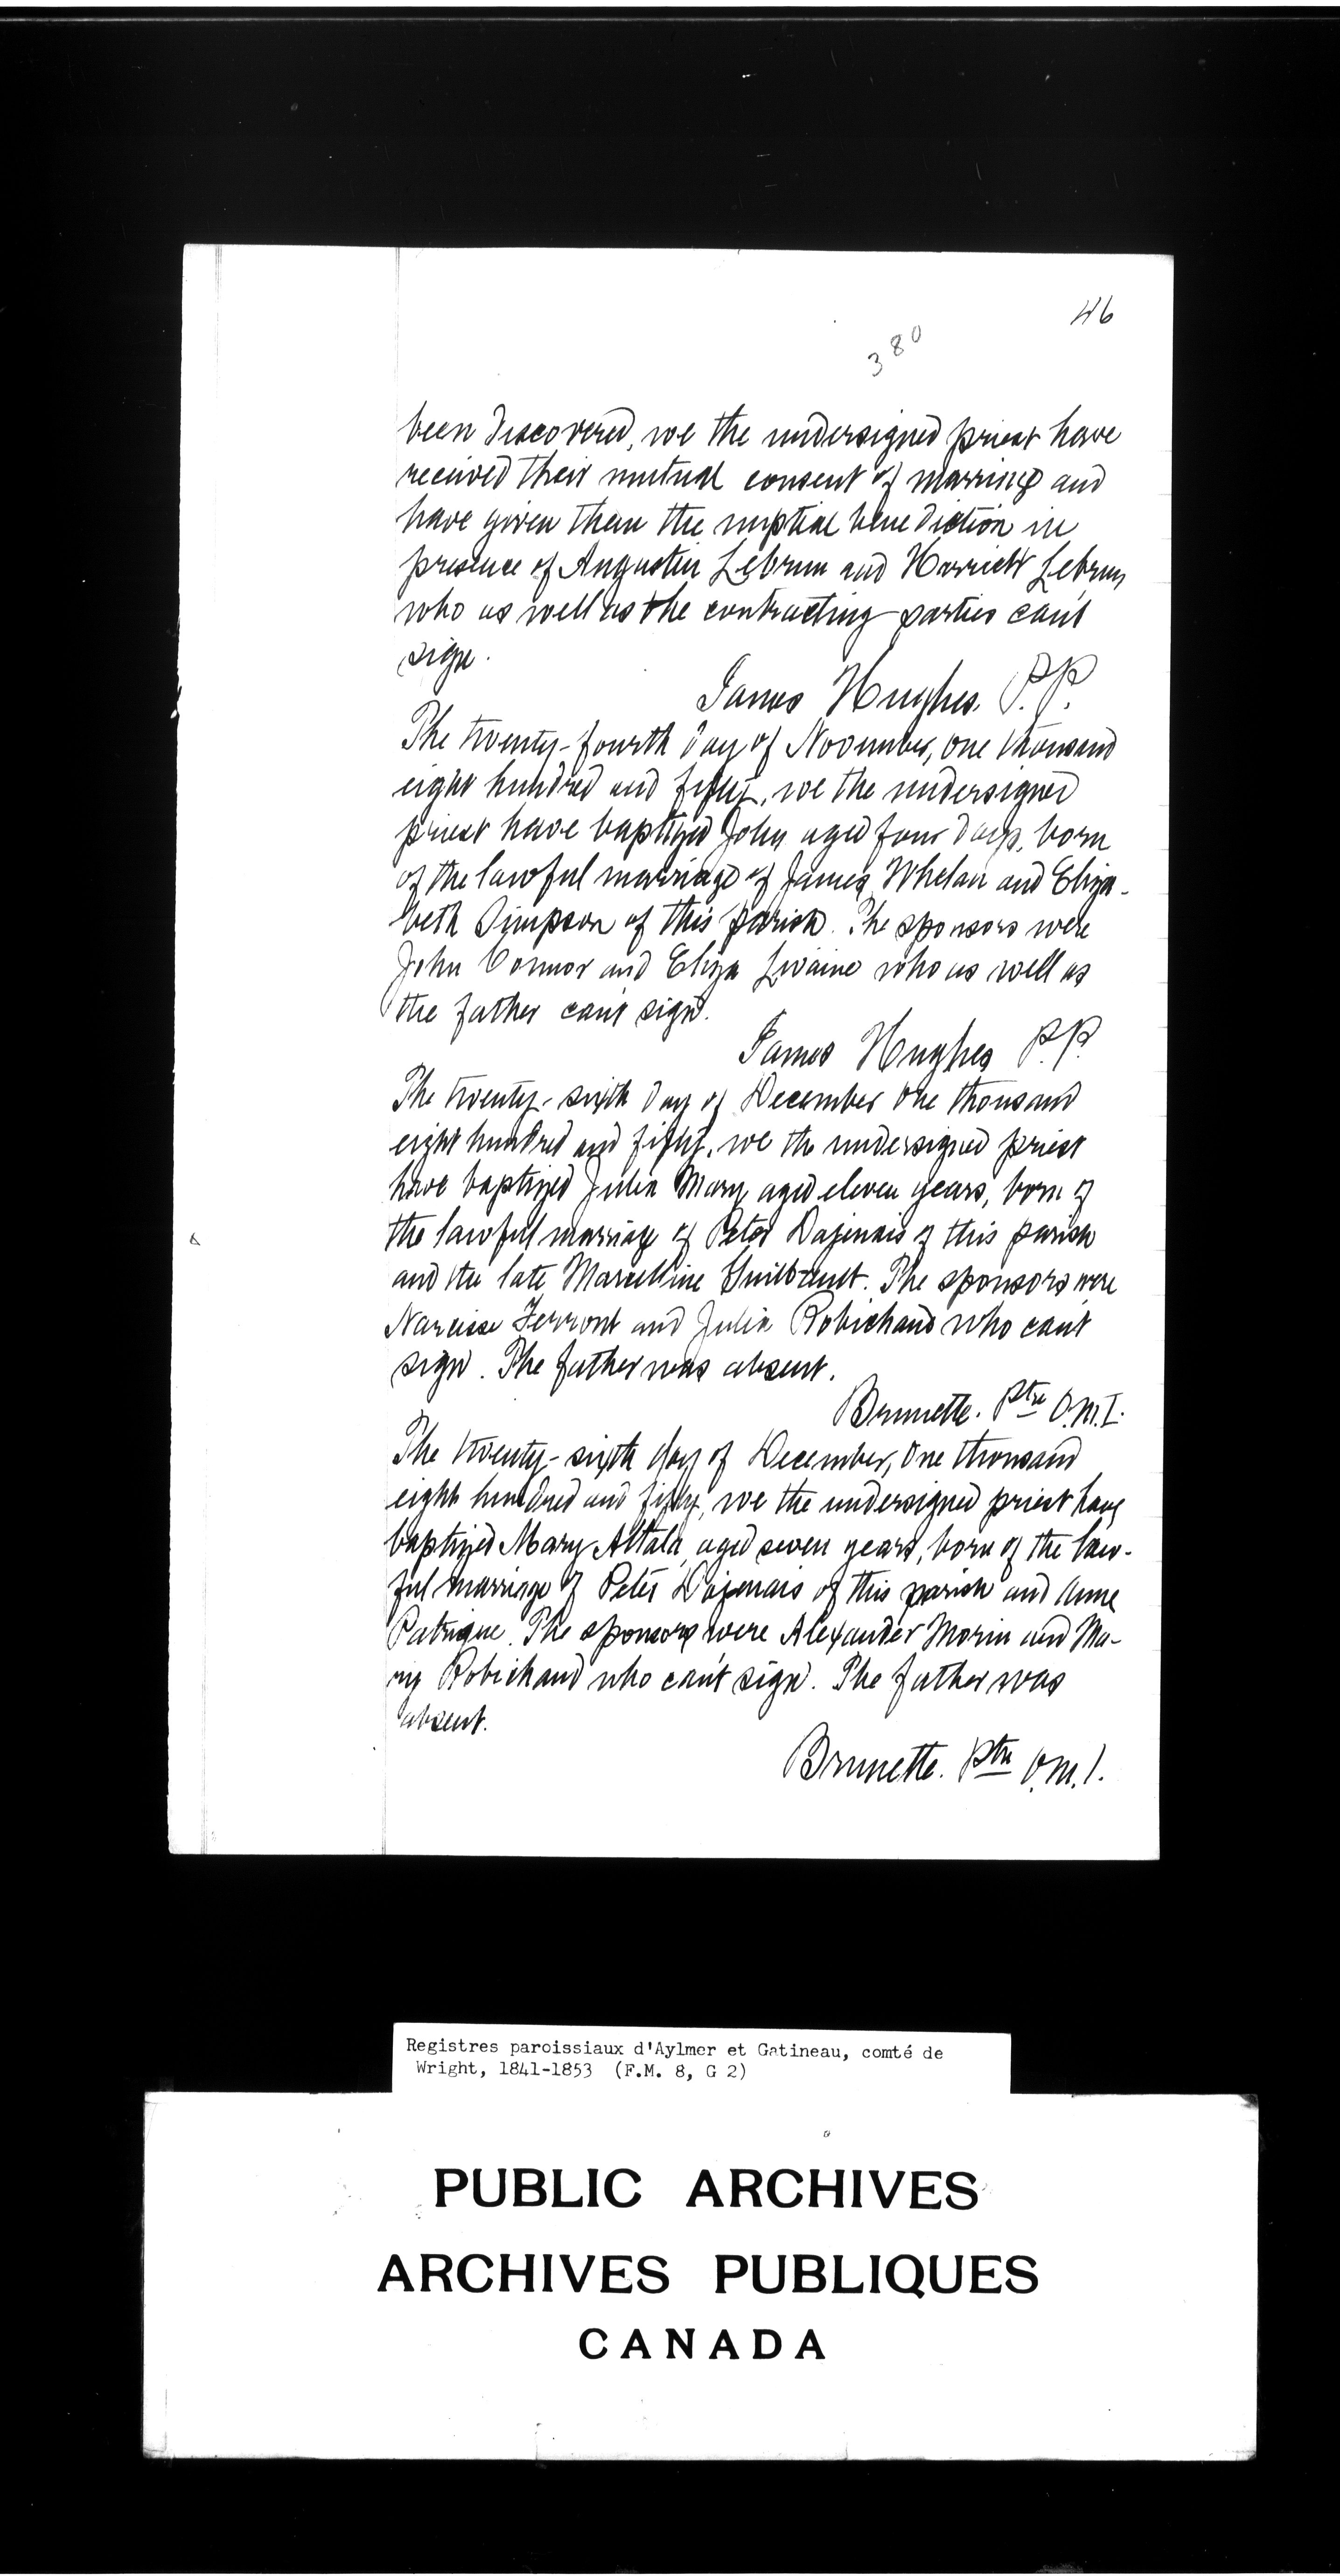 46
380
been discovered, we the undersigned priest have
received their mutual consent of marriage and
have given them the nuptial benediction in
presence of Augustin Lebrun and Harriett Lebrun,
who as well as the contracting parties can't
sign.
James Hughes. P.P.
The twenty-fourth day of November, one thousand
eight hundred and fifty, we the undersigned
priest have baptized John aged four days, born
of the lawful marriage of James Whelan and Eliza-
beth Simpson of this parish. The sponsors were
John Connor and Eliza who as well as
the father can't sign.
James Hughes P.P.
The twenty-sixth day of December one thousand
eight hundred and fifty, we the undersigned priest
have baptized Julia Mary aged eleven years, born of
the lawful marriage of Peter Dajenais of this parish
and the late Marcelline Guilbault. The sponsors were
Narcisse Ferront and Julia Robichaud who can't
sign. The father was absent.
Brunette. Ptre O.M.I.
The twenty-sixth day of December, one thousand
eight hundred and fifty, we the undersigned priest have
baptized Mary Attala, aged seven years, born of the law-
ful marriage of Peter Dajenais of this parish and Anne
Patrique. The sponsors were Alexander Morin and Ma-
ry Robichaud who can't sign. The father was
absent.
Brunette. Ptre O.M.I.
Registres paroissiaux d'Aylmer et Gatineau, comté de
Wright, 1841-1853 (F.M. 8, G 2)
PUBLIC ARCHIVES
ARCHIVES PUBLIQUES
CANADA